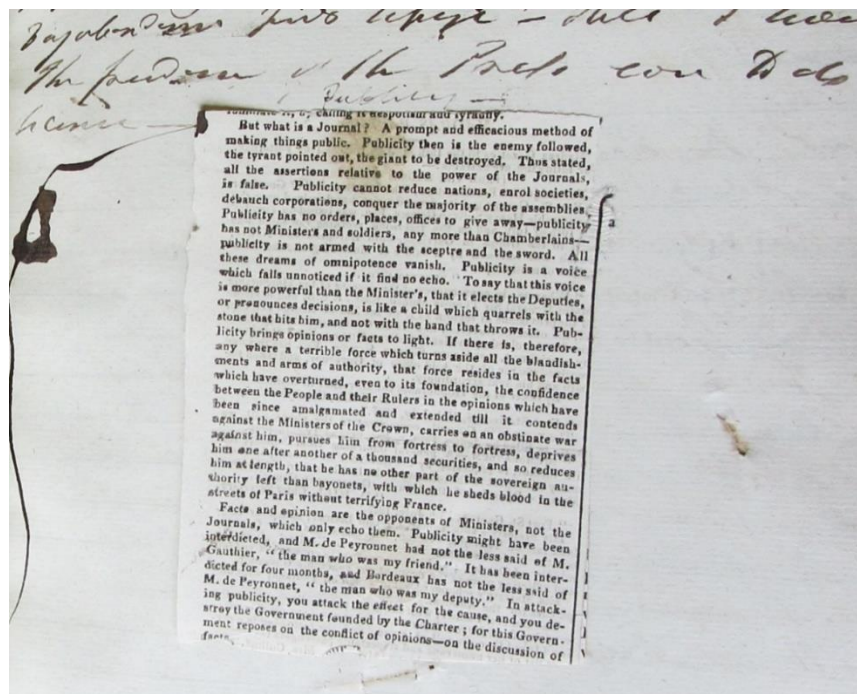 the freedom of the Press can
Publicity
calling it despotism and tyranny.
But what is a Journal? A prompt and efficacious method of
making things public. Publicity then is the enemy followed,
the tyrant pointed out, the giant to be destroyed. Thus stated,
all the assertions relative to the power of the Journals,
is false. Publicity cannot reduce nations, enrol societies,
debauch corporations, conquer the majority of the assemblies.
Publicity has no orders, places, offices to give away—publicity
has not Ministers and soldiers, any more than Chamberlains—
publicity is not armed with the sceptre and the sword. All
these dreams of omnipotence vanish. Publicity is a voice
which falls unnoticed if it find no echo. To say that this voice
is more powerful than the Minister's, that it elects the Deputies,
or pronounces decisions, is like a child which quarrels with the
stone that hits him, and not with the hand that throws it. Pub-
licity brings opinions or facts to light. If there is, therefore,
any where a terrible force which turns aside all the blandish-
ments and arms of authority, that force resides in the facts
which have overturned, even to its foundation, the confidence
between the People and their Rulers in the opinions which have
been since amalgamated and extended till it contends
against the Ministers of the Crown, carries on an obstinate war
against him, pursues him from fortress to fortress, deprives
him one after another of a thousand securities, and so reduces
him at length, that he has no other part of the sovereign au-
thority left than bayonets, with which he sheds blood in the
streets of Paris without terrifying France.
Facts and opinion are the opponents of Ministers, not the
Journals, which only echo them. Publicity might have been
interdicted, and M. de Peyronnet had not the less said of M.
Gauthier, "the man who was my friend." It has been inter-
dicted for four months, and Bordeaux has not the less said of
M. de Peyronnet, "the man who was my deputy." In attack-
ing publicity, you attack the effect for the cause, and you de-
stroy the Government founded by the Charter; for this Govern-
ment reposes on the conflict of opinions—on the discussion of
facts.